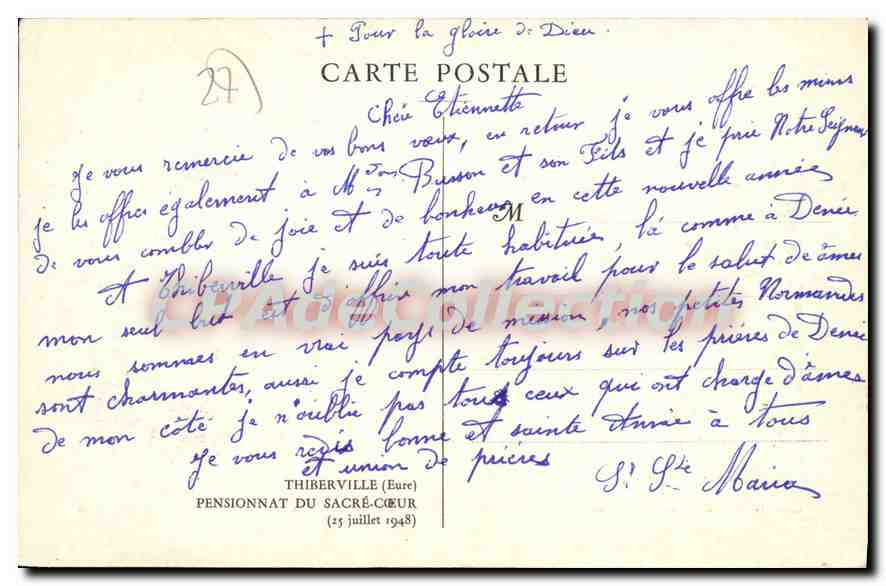 + Pour la gloire de Dieu.
27
CARTE POSTALE
Chère Etiennette
Je vous remercie de vos bons vœux, en retour je vous offre les miens
je les offre également à Busson et son Fils et je prie Notre Seigneur
de vous combler de joie et de bonheur en cette nouvelle année
M
A Thiberville je suis toute habituée, là comme à Denée
mon seul but est d'offrir mon travail pour le salut de âmes
nous sommes en vrai pays de mission, nos petites Normandes
sont charmantes, aussi je compte toujours sur les prières de Denée
de mon côté je n'oublie pas tous ceux qui ont charge d'âmes
Je vous redis bonne et sainte Année à tous
et union de prières
Sr Ste Maria
THIBERVILLE (Eure)
PENSIONNAT DU SACRÉ-CŒUR
(25 juillet 1948)
CPAdeCollection